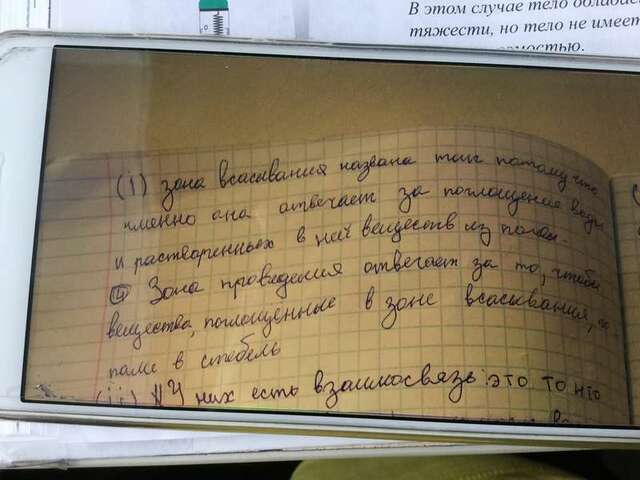 В этом случае тело облада
тяжести, но тело не имеет
омостью.
(i) зона всасывания названа так потому что
именно она отвечает за поглощение воды
и растваренных в ней веществ из почвы.
④ Зона проведения отвечает за то, чтобы
вещества, поглощенные в зоне всасывания,
пали в стебель
(ii) У них есть взаимосвязь: это то что